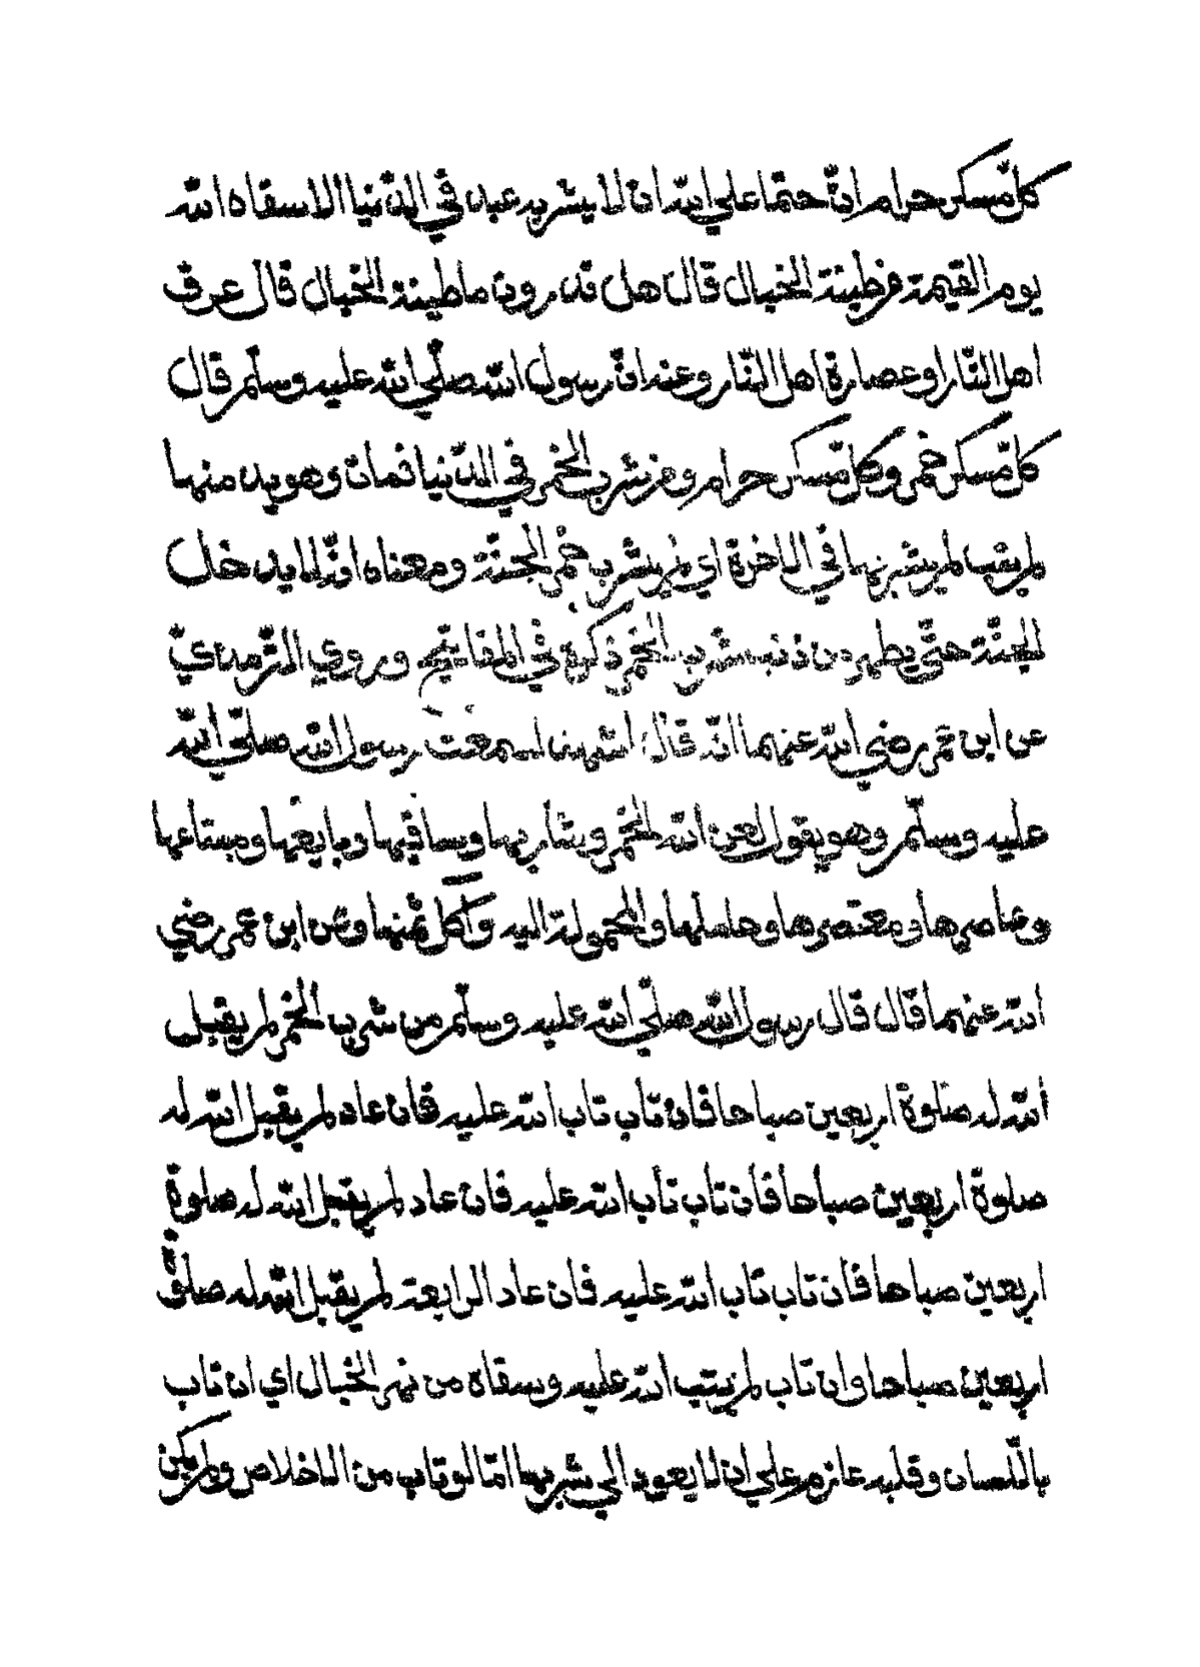 كلّ مسكر حرام انّ حتما علي الله ان لا يشربه عبد في الدّنيا الا سقاه الله
يوم القيمة من طينة الخبال قال هل تدرون ما طينة الخبال قال عرق
اهل النّار او عصارة اهل النّار وعنه انّ رسول الله صلّي الله عليه وسلّم قال
كلّ مسكر خمر وكلّ مسكر حرام ومن شرب الخمر في الدّنيا فمات وهو يدمنها
لم يتب لم يشربها في الاخرة اي لم يشرب خمر الجنّة ومعناه انّه لا يدخل
الجنّة حتّي يطهر من ذنب شرب الخمر ذكره في المفاتيح وروي التّرمديّ
عن ابن عمر رضي الله عنهما انّه قال اشهد لسمعت رسول الله صلّي الله
عليه وسلّم وهو يقول لعن الله الخمر وشاربها وساقيها وبايعها ومبتاعها
وعاصرها ومعتصرها وحاملها والمحمولة اليه وآكل ثمنها وعن ابن عمر رضي
الله عنهما قال قال رسول الله صلّي الله عليه وسلّم من شرب الخمر لم يقبل
الله له صلوة اربعين صباحا فان تاب تاب الله عليه فان عاد لم يقبل الله له
صلوة اربعين صباحا فان تاب تاب الله عليه فان عاد لم يقبل الله له صلوة
اربعين صباحا فان تاب تاب الله عليه فان عاد الرابعة لم يقبل الله له صلوة
اربعين صباحا وان تاب لم يتب الله عليه وسقاه من نهر الخبال اي ان تاب
باللّسان وقلبه عازم علي ان لا يعود الي شربها امّا لو تاب من الاخلاص ولم يكن